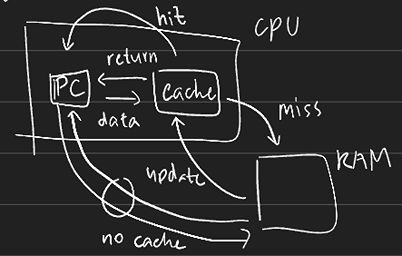 hit
CPU
return
PC
cache
data
miss
RAM
update
no cache